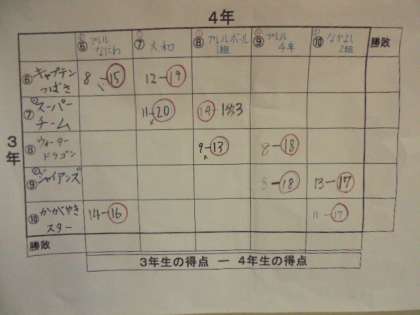 4年
⑥ アルル なにわ ⑦ 大和 ⑧ アルルボール 1組 ⑨ アルル 4年 ⑩ なかよし 2組 勝敗
3年
⑥ キャプテン つばさ 8-15 12-19
⑦ スーパー チーム 11-20 14-13
⑧ ウォーター ドラゴン 9-13 8-18
⑨ ジャイアンズ 8-18 13-17
⑩ かがやき スター 14-16 11-17
勝敗
3年生の得点 ― 4年生の得点